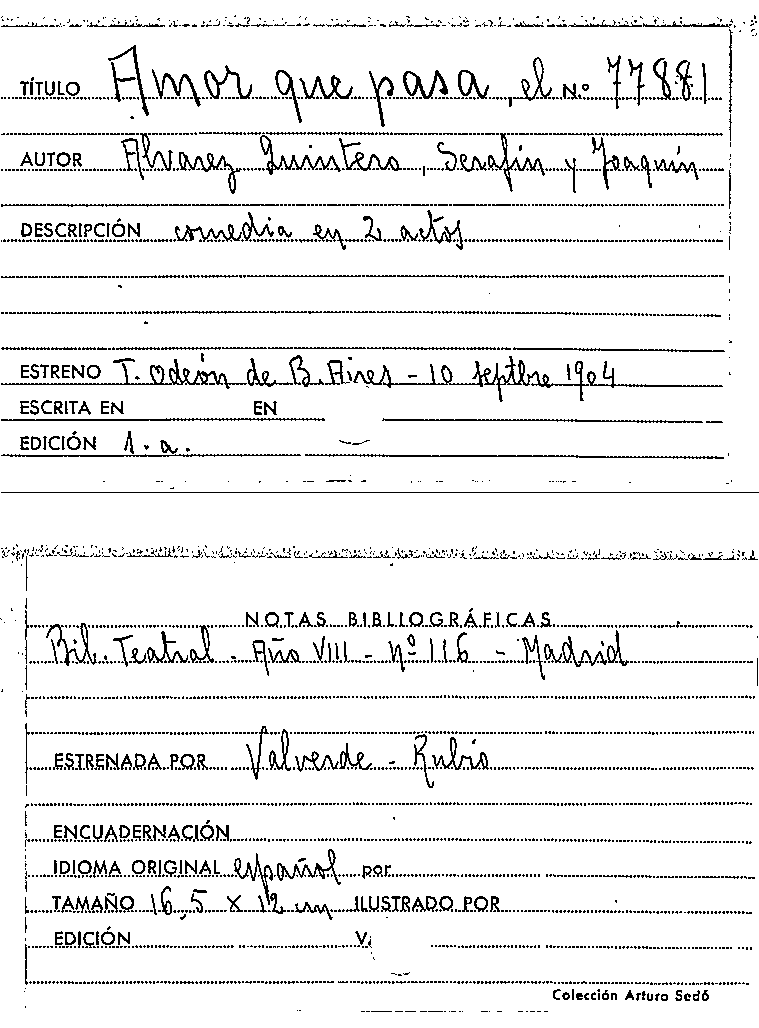 TÍTULO Amor que pasa, el Nº 77881
AUTOR Alvarez Quintero, Serafín y Joaquín
DESCRIPCIÓN comedia en 2 actos
ESTRENO T. Odeón de B. Aires - 10 septbre 1904
ESCRITA EN EN
EDICIÓN 1.a.
NOTAS BIBLIOGRÁFICAS
Bib. Teatral - Año VIII - nº 116 - Madrid
ESTRENADA POR Valverde - Rubio
ENCUADERNACIÓN
IDIOMA ORIGINAL español por
TAMAÑO 16,5 x 12 cm ILUSTRADO POR
EDICIÓN V.
Colección Arturo Sedó